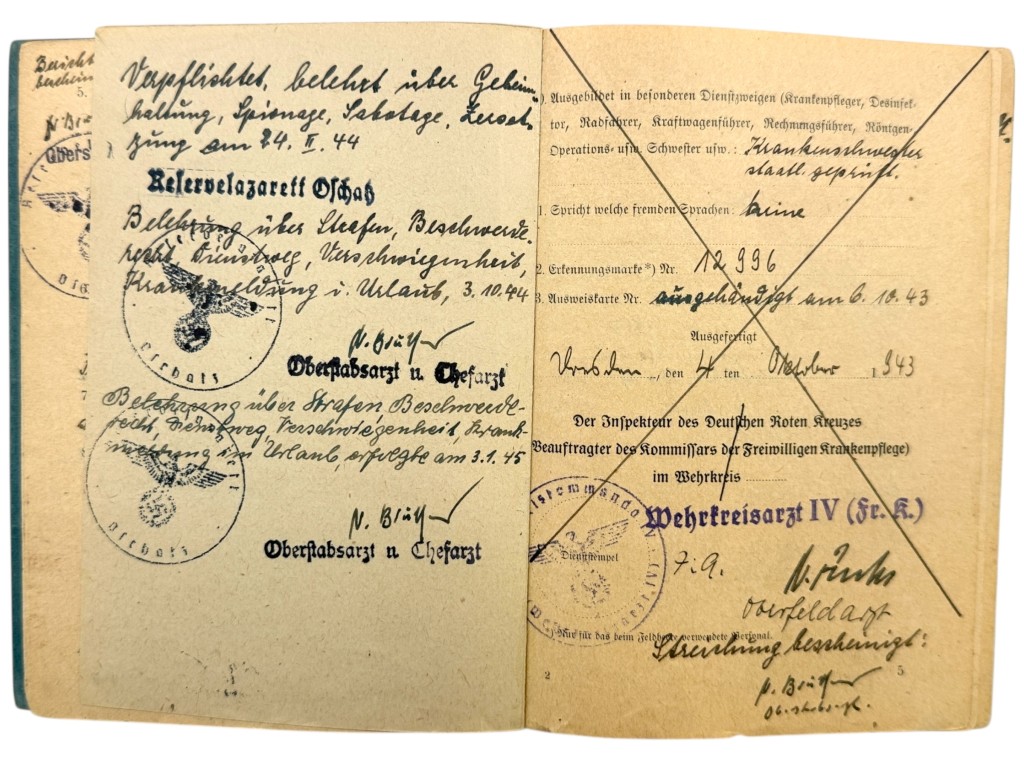 Bericht
bescheini
5.
Obers
Verpflichtet, belehrt über Geheim-
haltung, Spionage, Sabotage, Zerset-
zung am 24. II. 44
Reservelazarett Oschatz
Belehrung über Strafen, Beschwerde-
recht, Dienstweg, Verschwiegenheit,
Krankmeldung u. Urlaub, 3.10.44
Oschatz
Oberstabsarzt u Chefarzt
Belehrung über Strafen Beschwerde-
recht, Dienstweg, Verschwiegenheit, Krank-
meldung und Urlaub, erfolgte am 3.1.45
Oschatz
Oberstabsarzt u Chefarzt
). Ausgebildet in besonderen Dienstzweigen (Krankenpfleger, Desinfek-
tor, Radfahrer, Kraftwagenführer, Rechnungsführer, Röntgen-
Operations- usw. Schwester usw.: Krankenschwester
staatl. geprüft.
1. Spricht welche fremden Sprachen: keine
2. Erkennungsmarke*) Nr. 12996
3. Ausweiskarte Nr. ausgehändigt am 6.10.43
Ausgefertigt
Dresden, den 4 ten Oktober 1943
Der Inspekteur des Deutschen Roten Kreuzes
Beauftragter des Kommissars der Freiwilligen Krankenpflege)
im Wehrkreis
Wehrkreisarzt IV (Fr. K.)
Dienststempel
Oberfeldarzt
*) Nur für das beim Feldheere verwendete Personal.
Streichung bescheinigt:
2
5